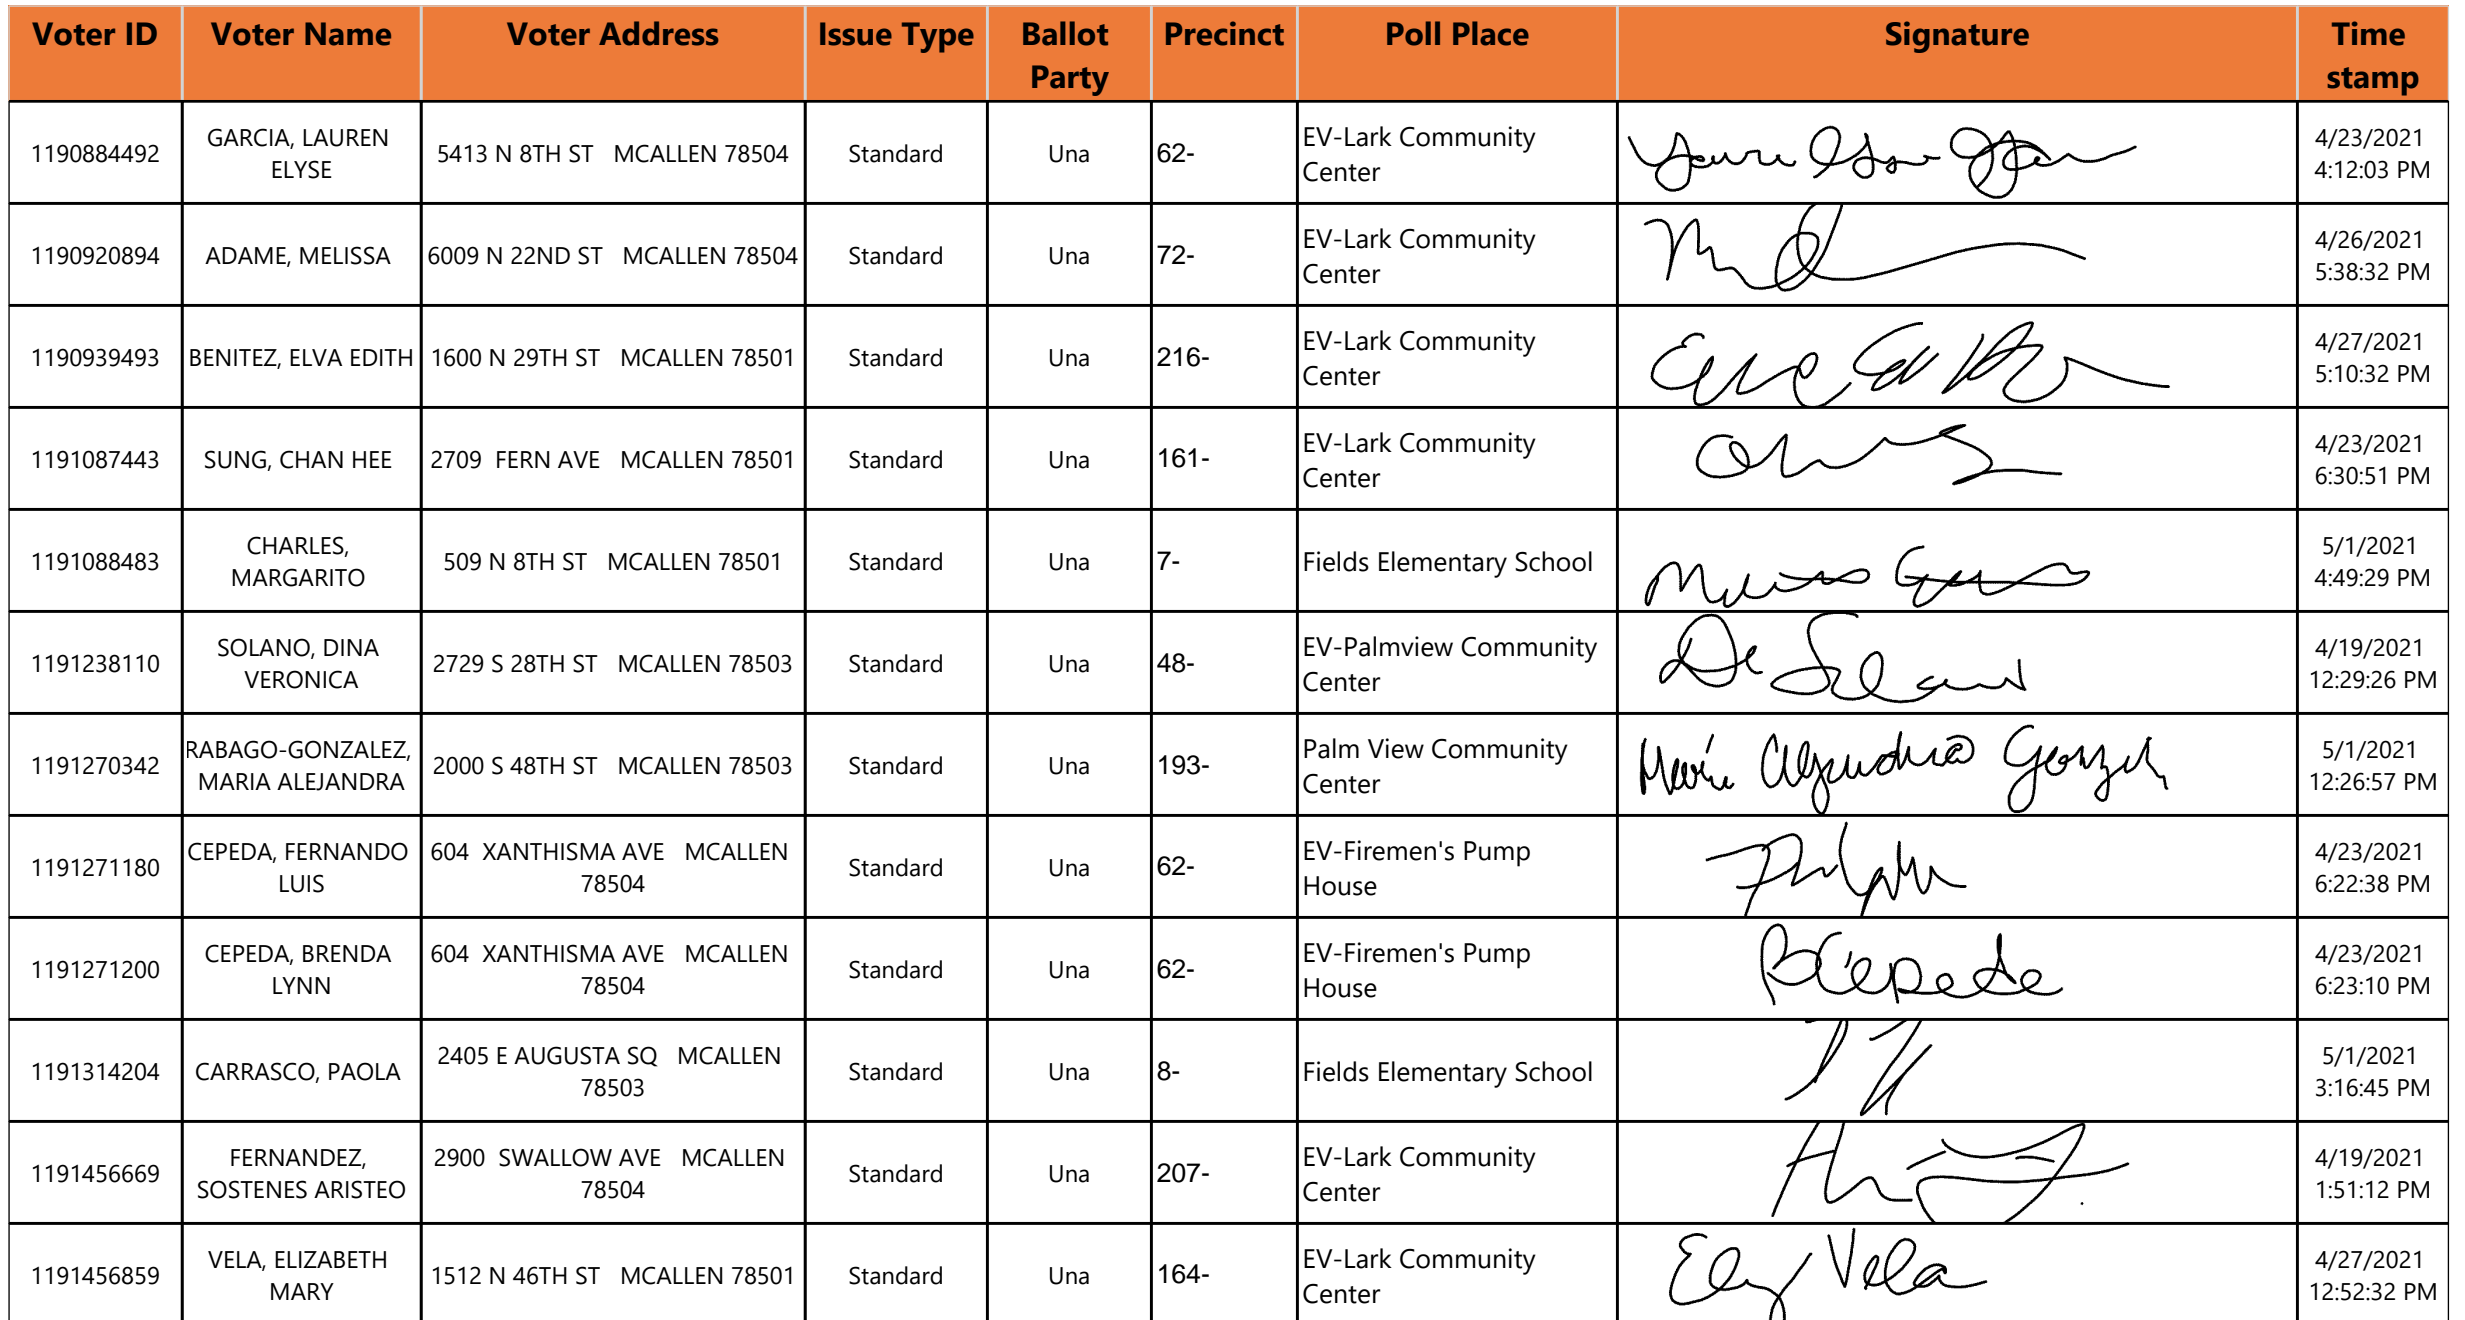 Voter ID Voter Name Voter Address Issue Type Ballot Party Precinct Poll Place Signature Time stamp
1190884492 GARCIA, LAUREN ELYSE 5413 N 8TH ST MCALLEN 78504 Standard Una 62- EV-Lark Community Center 4/23/2021 4:12:03 PM
1190920894 ADAME, MELISSA 6009 N 22ND ST MCALLEN 78504 Standard Una 72- EV-Lark Community Center 4/26/2021 5:38:32 PM
1190939493 BENITEZ, ELVA EDITH 1600 N 29TH ST MCALLEN 78501 Standard Una 216- EV-Lark Community Center 4/27/2021 5:10:32 PM
1191087443 SUNG, CHAN HEE 2709 FERN AVE MCALLEN 78501 Standard Una 161- EV-Lark Community Center 4/23/2021 6:30:51 PM
1191088483 CHARLES, MARGARITO 509 N 8TH ST MCALLEN 78501 Standard Una 7- Fields Elementary School 5/1/2021 4:49:29 PM
1191238110 SOLANO, DINA VERONICA 2729 S 28TH ST MCALLEN 78503 Standard Una 48- EV-Palmview Community Center 4/19/2021 12:29:26 PM
1191270342 RABAGO-GONZALEZ, MARIA ALEJANDRA 2000 S 48TH ST MCALLEN 78503 Standard Una 193- Palm View Community Center 5/1/2021 12:26:57 PM
1191271180 CEPEDA, FERNANDO LUIS 604 XANTHISMA AVE MCALLEN 78504 Standard Una 62- EV-Firemen's Pump House 4/23/2021 6:22:38 PM
1191271200 CEPEDA, BRENDA LYNN 604 XANTHISMA AVE MCALLEN 78504 Standard Una 62- EV-Firemen's Pump House BCepeda 4/23/2021 6:23:10 PM
1191314204 CARRASCO, PAOLA 2405 E AUGUSTA SQ MCALLEN 78503 Standard Una 8- Fields Elementary School 5/1/2021 3:16:45 PM
1191456669 FERNANDEZ, SOSTENES ARISTEO 2900 SWALLOW AVE MCALLEN 78504 Standard Una 207- EV-Lark Community Center 4/19/2021 1:51:12 PM
1191456859 VELA, ELIZABETH MARY 1512 N 46TH ST MCALLEN 78501 Standard Una 164- EV-Lark Community Center Vela 4/27/2021 12:52:32 PM